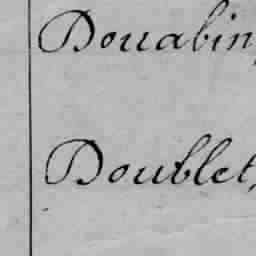 Douabin,
Doublet,